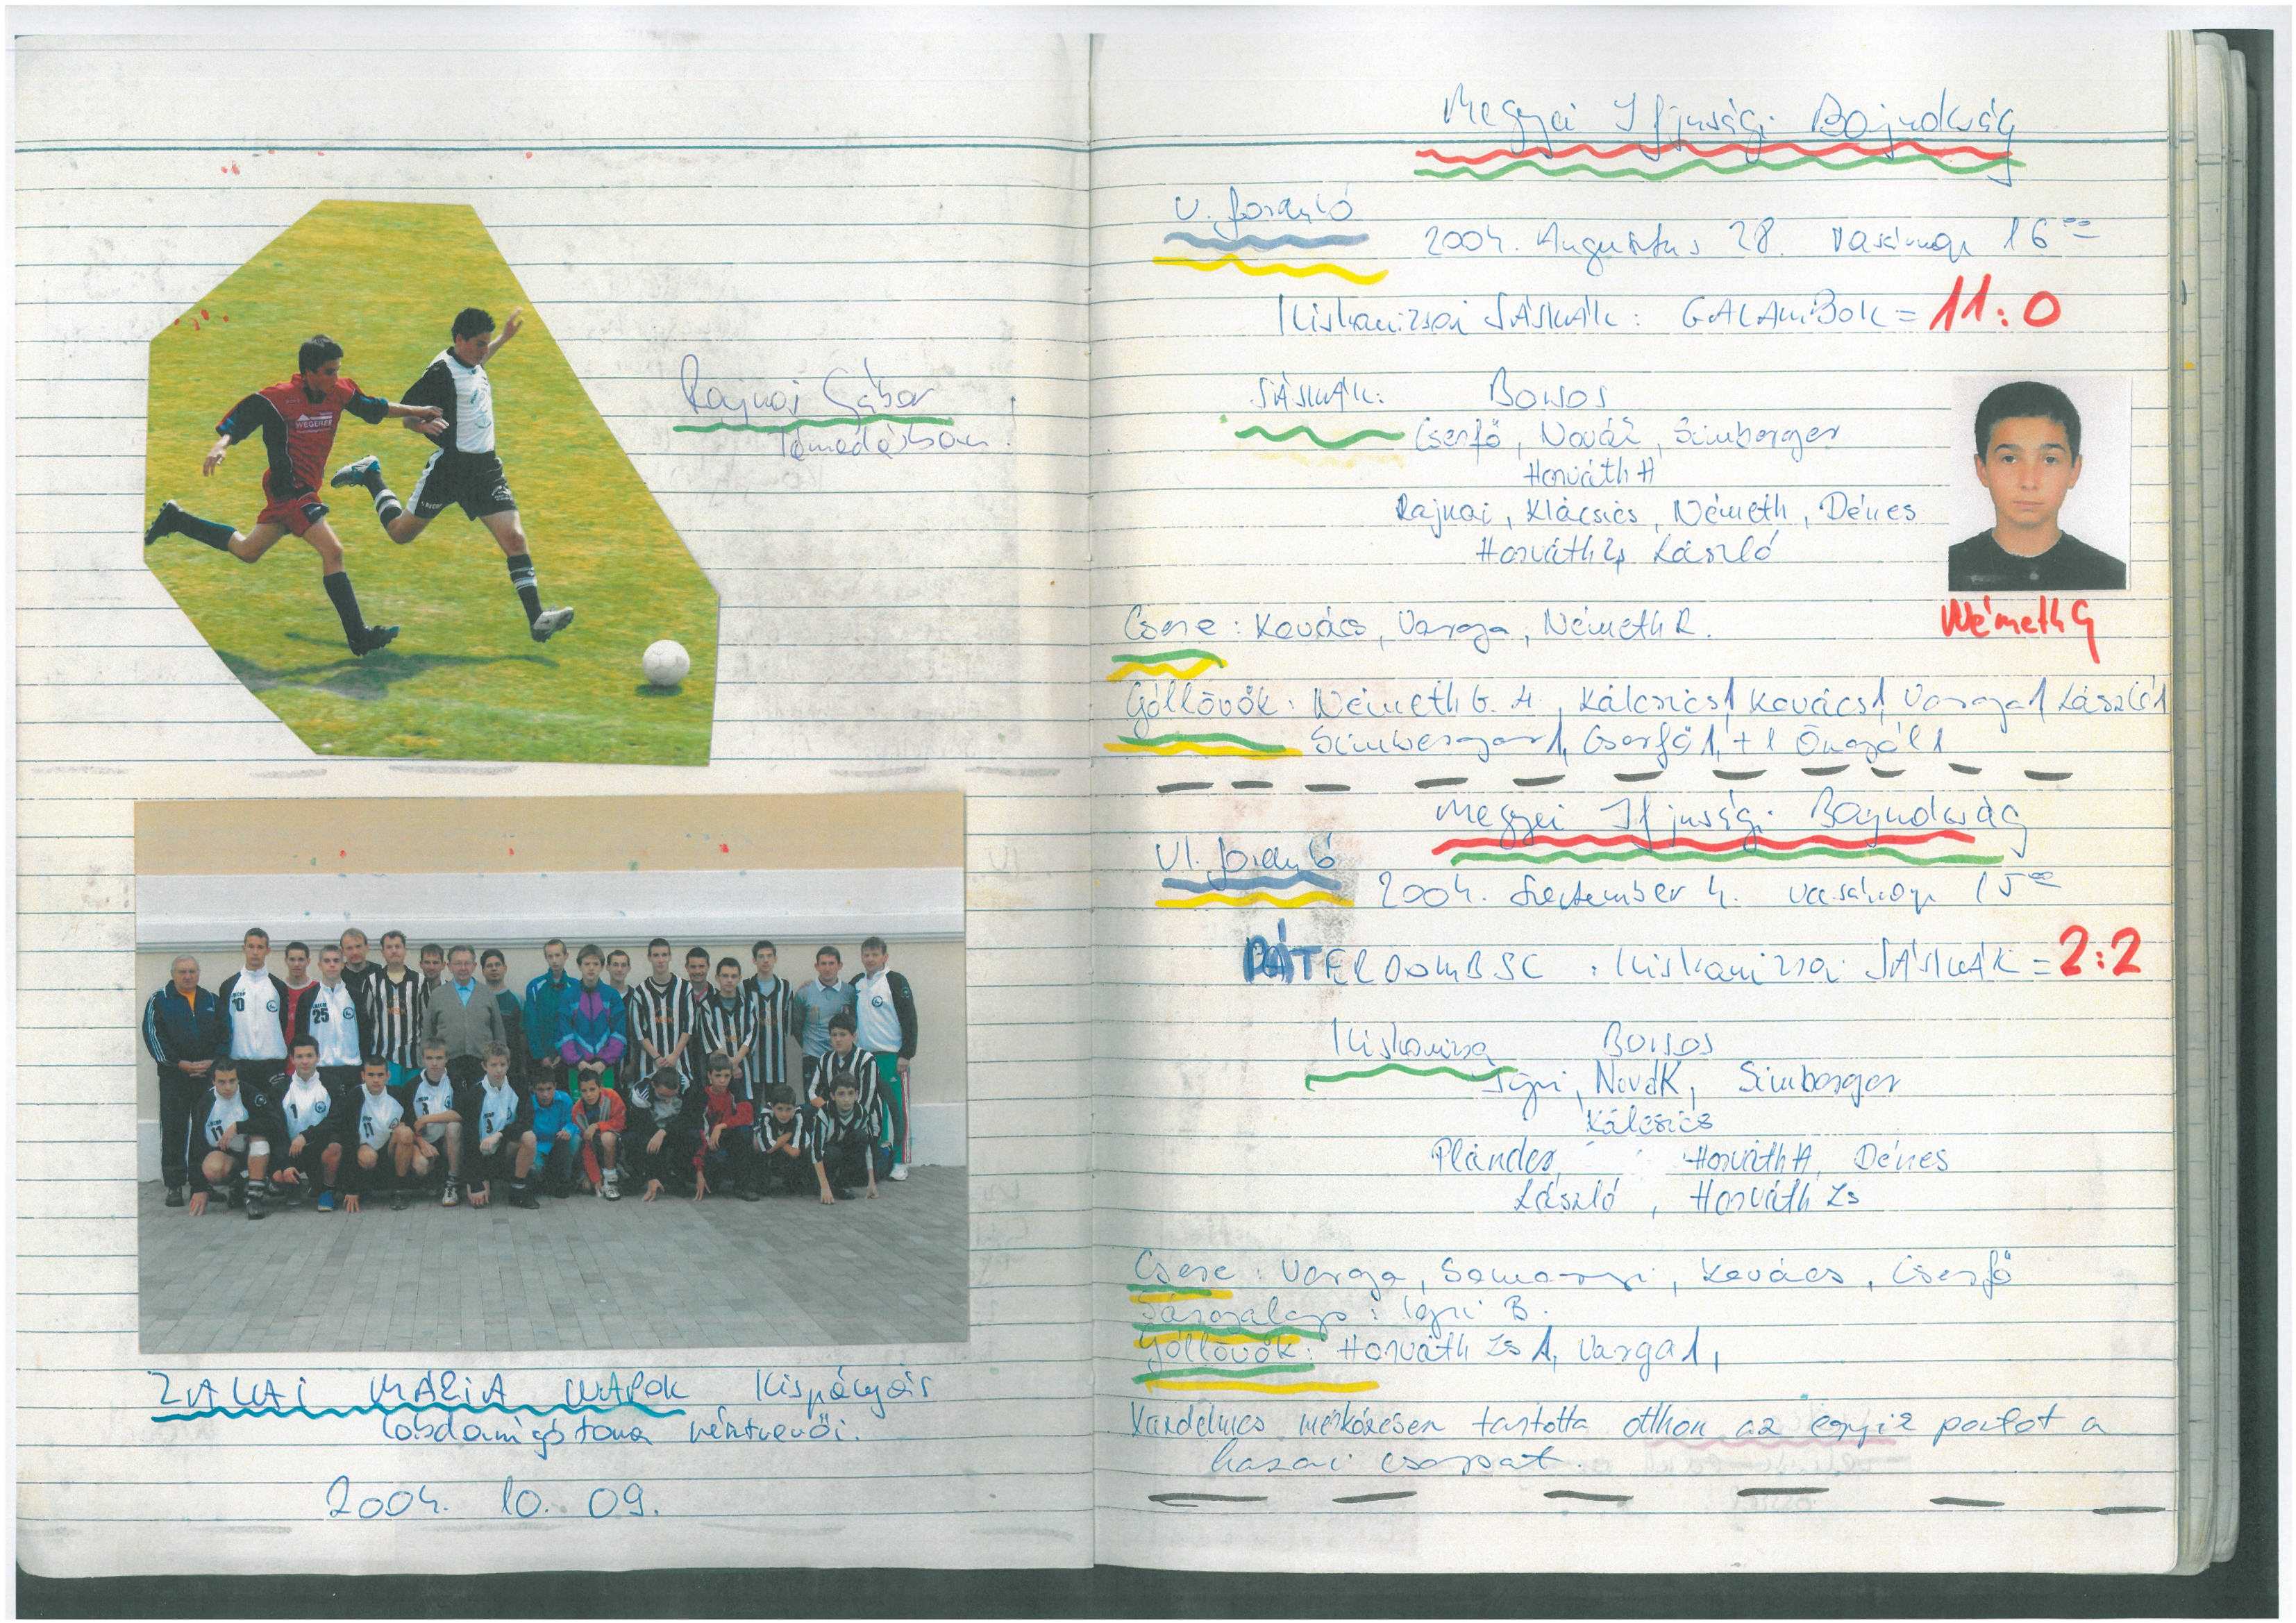 Rajnai Gábor
Támadásban.
ZALAI MÁRIA NAPOK Kispályás
labdarúgótorna résztvevői.
2004. 10. 09.
Megyei Ifjusági Bajnokság
V. forduló
2004. Augusztus 28. vasárnap 16 00
Kiskanizsai SÁSKÁK : GALAMBOK = 11:0
SÁSKÁK: Boisos
Cserfő, Novák, Simberger
Horváth A
Rajnai, Klácsics, Németh, Dénes
Horváth Zs László
Németh G
Csere: Kovács, Varga, Németh R.
Góllövők: Németh G. 4, Kálcsics 1, Kovács 1, Varga 1, László 1
Simberger 1, Cserfő 1, + 1 Öngól 1
Megyei Ifjusági Bajnokság
VI. forduló
2004. Szeptember 4. vasárnap 15 00
PÁTERDOMBSC : Kiskanizsai SÁSKÁK = 2:2
Kiskanizsa Boisos
Igri, Novák, Simberger
Kálcsics
Plánder, Horváth A, Dénes
László, Horváth Zs
Csere: Varga, Kovács, Cserfő
Sárgalap: Igri B.
Góllövők: Horváth Zs 1, Varga 1,
mérkőzésen tartotta otthon az egyik pontot a
hazai csapat.